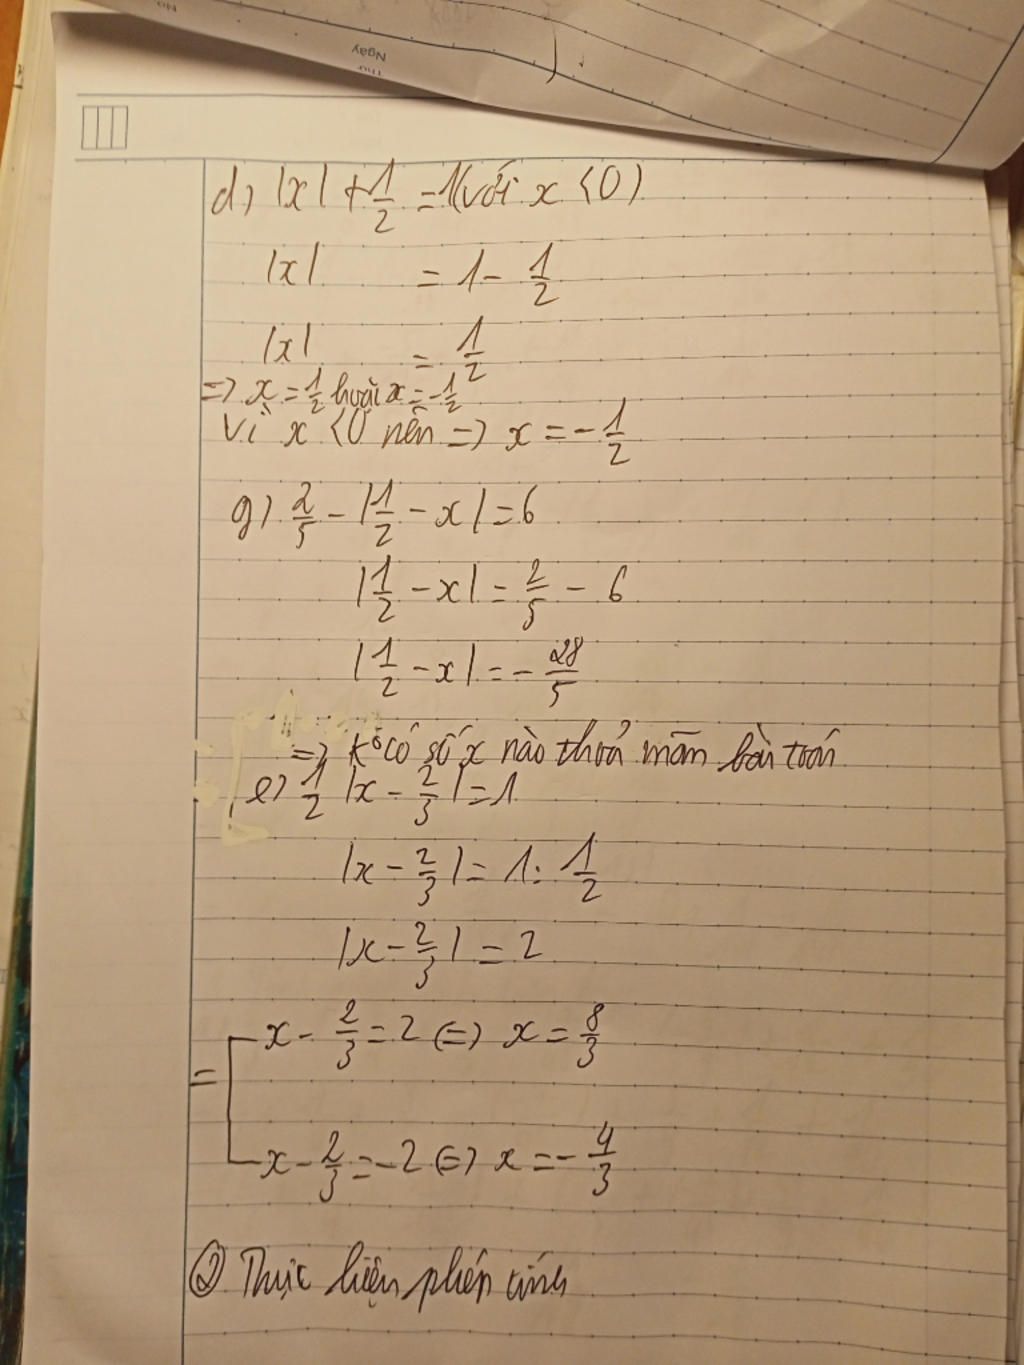 Ngày
Thứ
No
d) |x| + 1/2 = 1 (với x < 0)
|x| = 1 - 1/2
|x| = 1/2
=> x = 1/2 hoặc x = -1/2
Vì x < 0 nên => x = -1/2
g) 2/5 - |1/2 - x| = 6
|1/2 - x| = 2/5 - 6
|1/2 - x| = -28/5
=> Kº có số x nào thoả mãn bài toán
e) 1/2 |x - 2/3| = 1
|x - 2/3| = 1 : 1/2
|x - 2/3| = 2
x - 2/3 = 2 (=) x = 8/3
=
x - 2/3 = -2 (=) x = -4/3
② Thực hiện phép tính